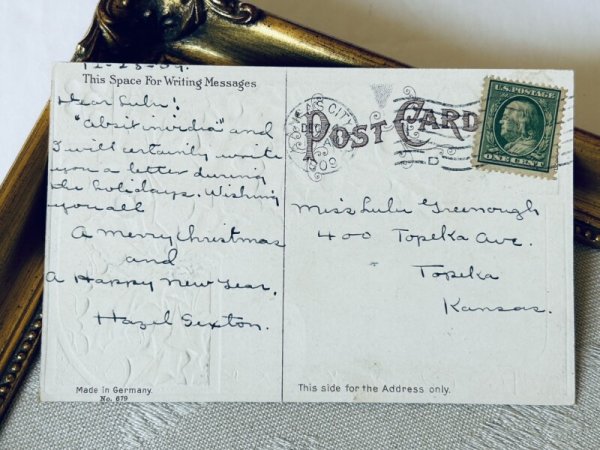 12-23-09.
This Space For Writing Messages
Dear Lulu!
"Absit invidia" and
I will certainly write
you a letter during
the holidays. Wishing
you all
A merry Christmas
and
A Happy New Year.
Hazel Sexton.
Made in Germany.
No. 879
KAS CITY
DEC
1909
POST CARD
U.S. POSTAGE
ONE CENT
Miss Lulu Greenough
400 Topeka Ave.
Topeka
Kansas.
This side for the Address only.